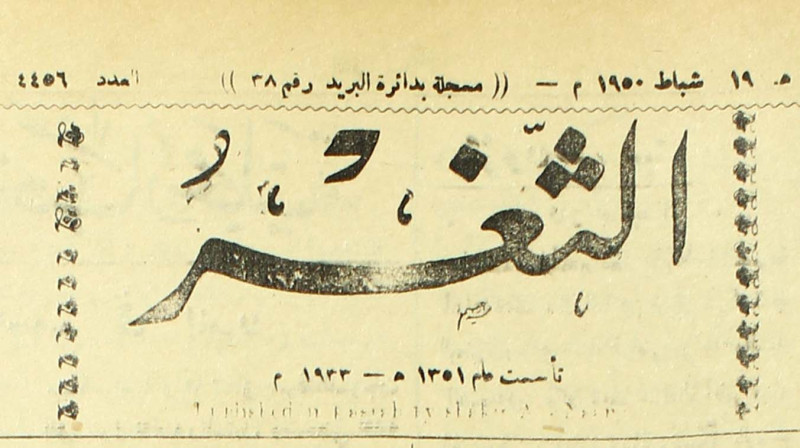 هـ ١٩ شباط ١٩٥٠ م — (( مسجلة بدائرة البريد رقم ٣٨ )) العدد ٤٤٥٦
الثغر
تأسست عام ١٣٥١ هـ — ١٩٣٣ م